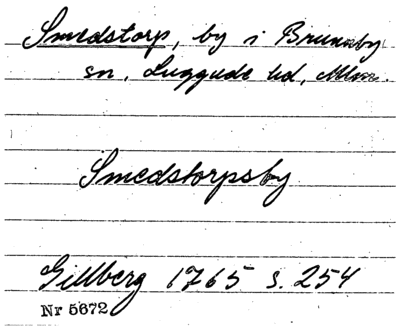 Smedstorp, by i Brunnby
sn, Luggude hd, Mlm.
Smedstorpsby
Gillberg 1765 s. 254
Nr 5672